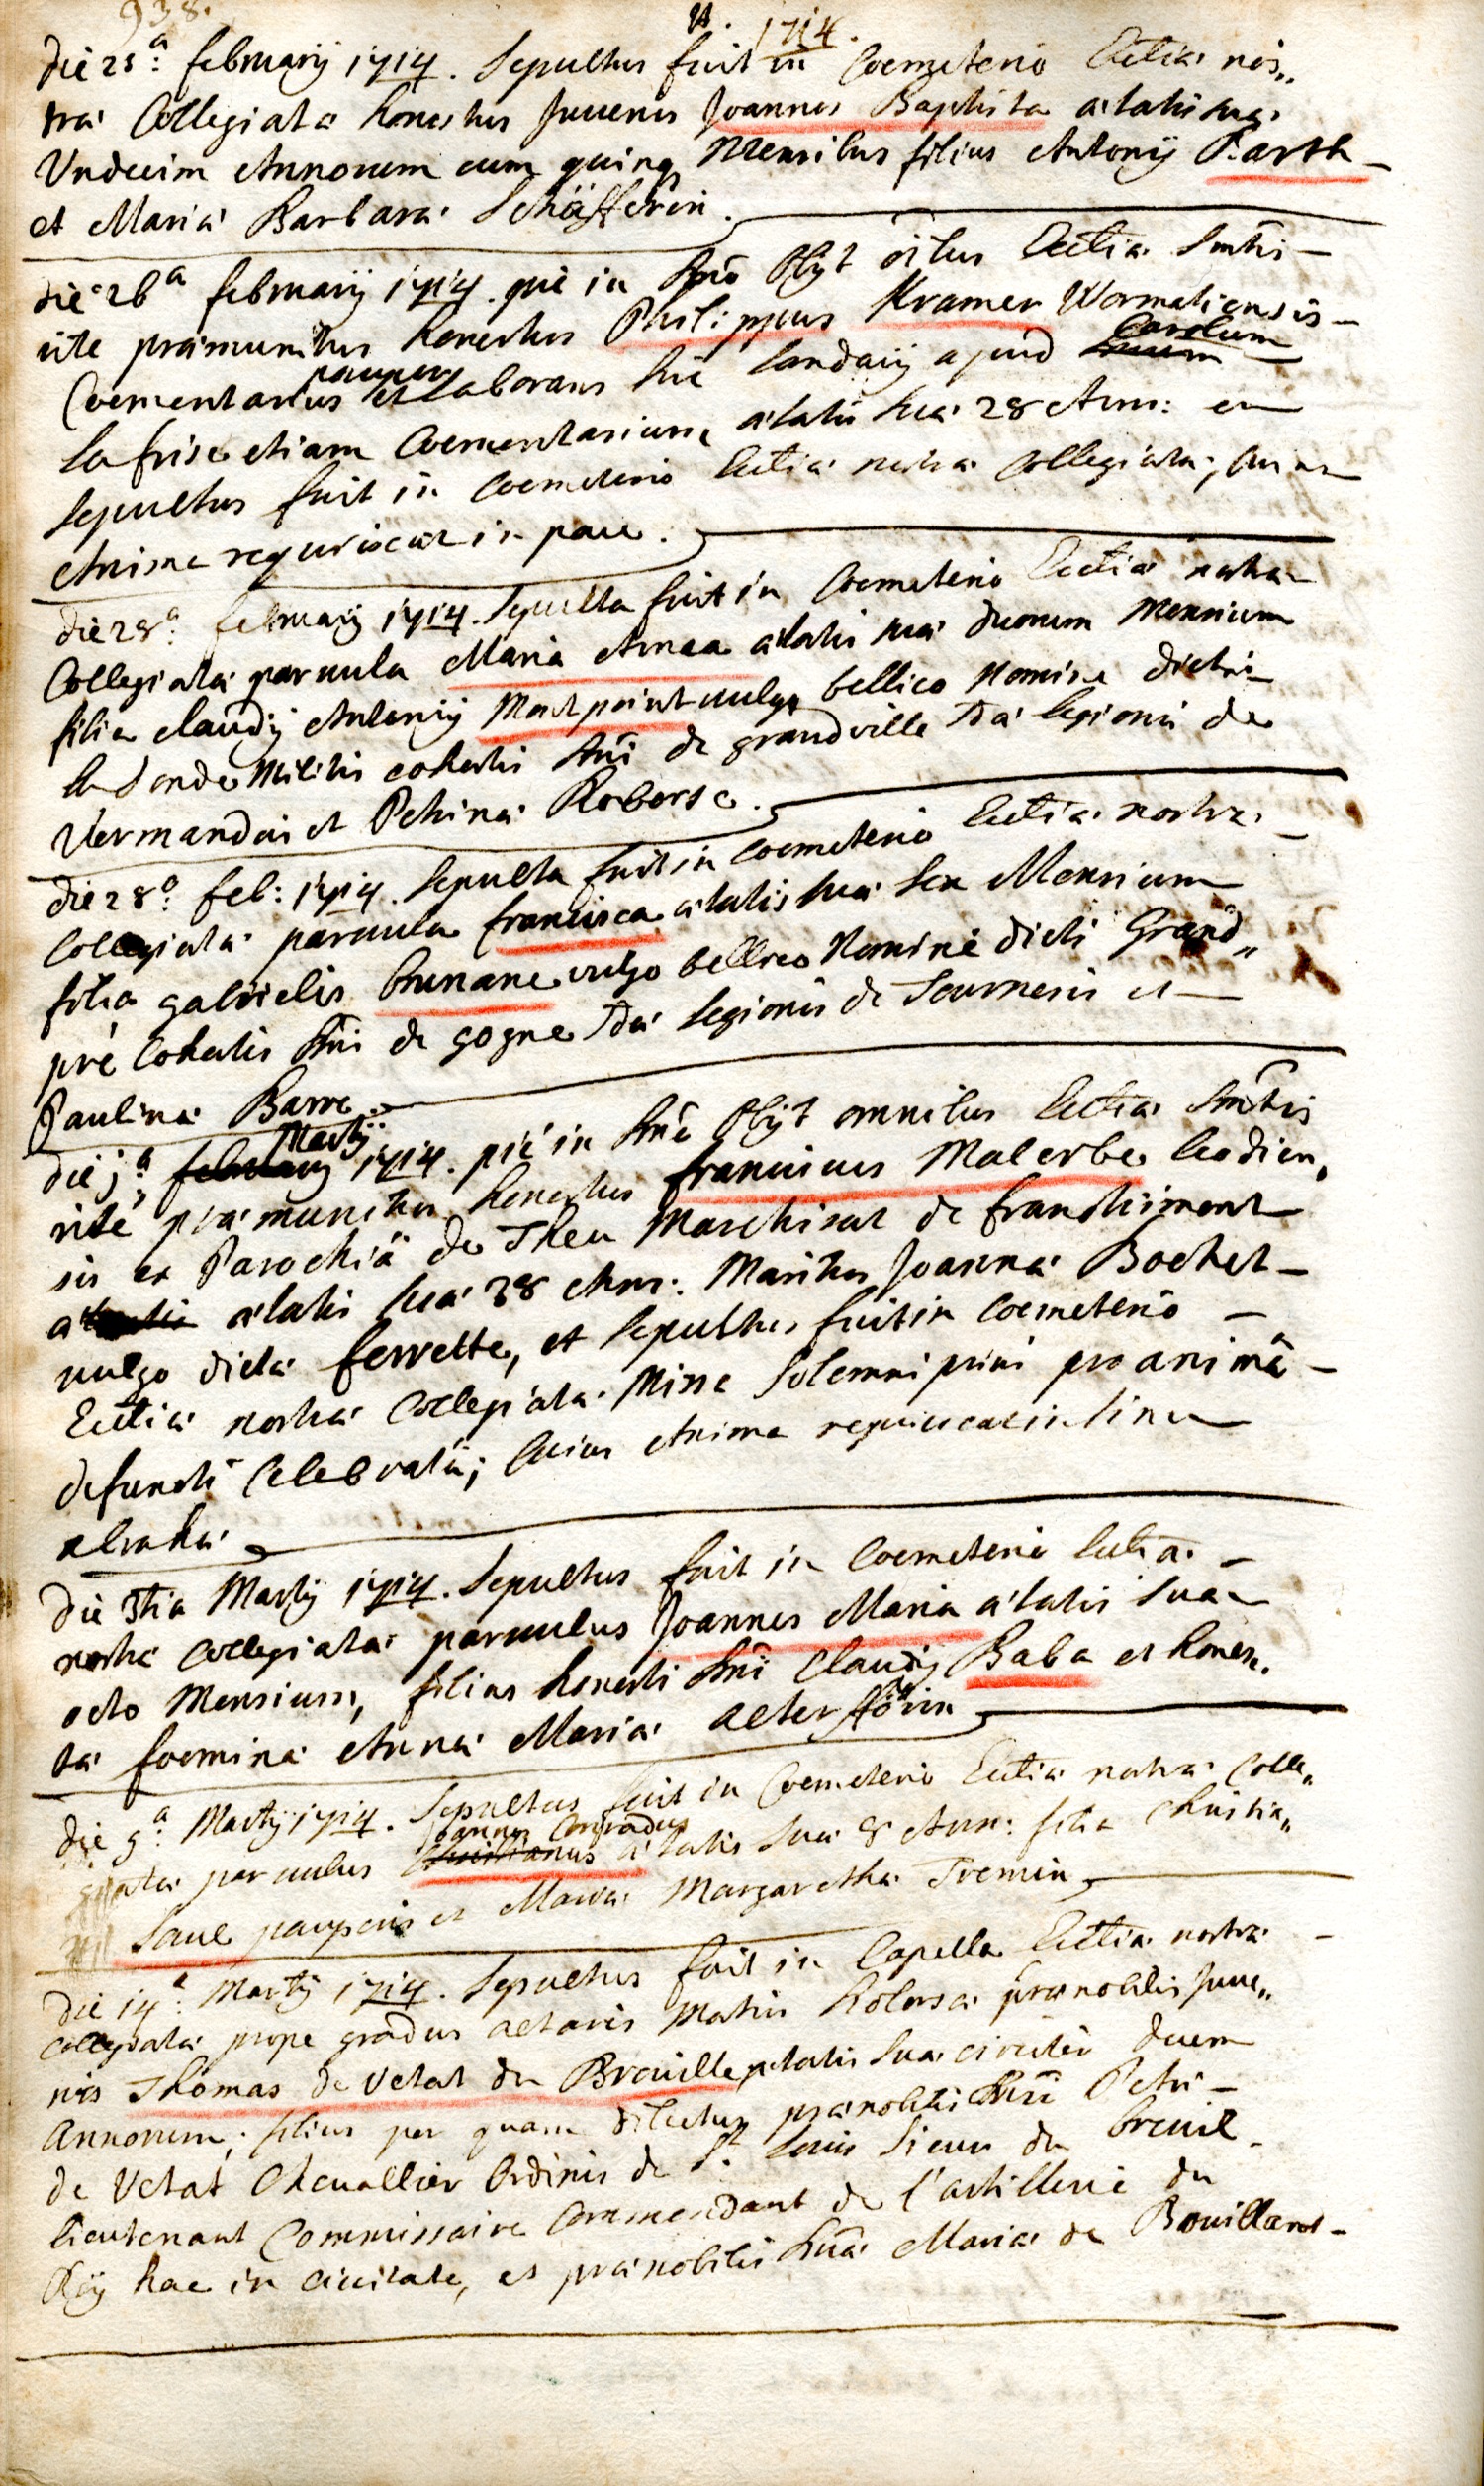 938.
N. 1714.
die 25.a february 1714. Sepultus fuit in Coemeterio Eccliae nos„
trae Collegiatae honestus Juvenis Joannes Baptista aetatis suae
Undecim Annorum cum quinq mensibus filius Antony Barth
et Mariae Barbarae Schäfferin.
die 26a february 1714. pie in Dno Obyt oibus Eccliae Smtis
rite praemunitus honestus Philippus Kramer Wormatiensis
Coementarius pauper et laborans hic Landavij apud Carolum
la frise etiam Coementarium, aetatis suae 28 Ann: et
Sepultus fuit in Coemeterio Eccliae nostrae Collegiatae, cuius
Anima requiescat in pace.
die 28.a february 1714. Sepulta fuit in Coemeterio Eccliae nostrae
Collegiatae parvula Maria Annea aetatis suae duorum Mensium
filia Claudij Antonij Montpoint vulgo bellico Nomine dicti
la Sonde Militis cohortis Dni de grandville dae legionis de
Vermandois et Petrinae Roborse.
die 28.a feb: 1714. Sepulta fuit in Coemeterio Eccliae nostrae
Collegiatae parvula francisca aetatis suae Sex Mensium
filia gabrielis Chunane vulgo bellico Nomine dicti Grand„
pré Cohortis Dni de gogne dae legionis de Tournesis et
Paulinae Barre.
die j.a Martij 1714. pie in Dno Obyt omnibus Eccliae Smtis
rite praemunitus honestus franciscus Malerbe leodien„
sis ex Parochiâ de Theu Marchisat de franchimont
aetatis suae 38 Ann: Maritus Joannae Bochet
vulgo dicta ferrette, et Sepultus fuit in Coemeterio
Eccliae nostrae Collegiatae Missa Solemni prius pro animâ
defuncti Celebratâ; Cuius Anima requiescat in Sinu
abrahae.
Die 3tia Martij 1714. Sepultus fuit in Coemeterio Eccliae
nostrae Collegiatae parvulus Joannes Maria aetatis suae
octo Mensium, filius honesti Dni Claudij Baba et hones„
tae foeminae Annae Mariae Alterstörin
die 9.a Martij 1714. Sepultus fuit in Coemeterio Eccliae nostrae Colle„
giatae parvulus Joannes Conradus aetatis suae 8 Ann: filia Christia„
Saul pauperis et Mariae Margarethae Tremin
Die 14.a Martij 1714. Sepultus fuit in Capella Eccliae nostrae
Collegiatae prope gradus altaris Matris Dolorosae praenobilis Juve„
nis Thomas de Vetat du Brouille aetatis suae circiter decem
Annorum; filius per quam dilectus praenobilis Dni Petri
de Vetat Chevallier Ordinis de St. Louis Sieur du breuil
lieutenant Commissaire Commendant de l'artillerie du
Roy hac in civitate, et praenobilis Dnae Mariae de Bouillant